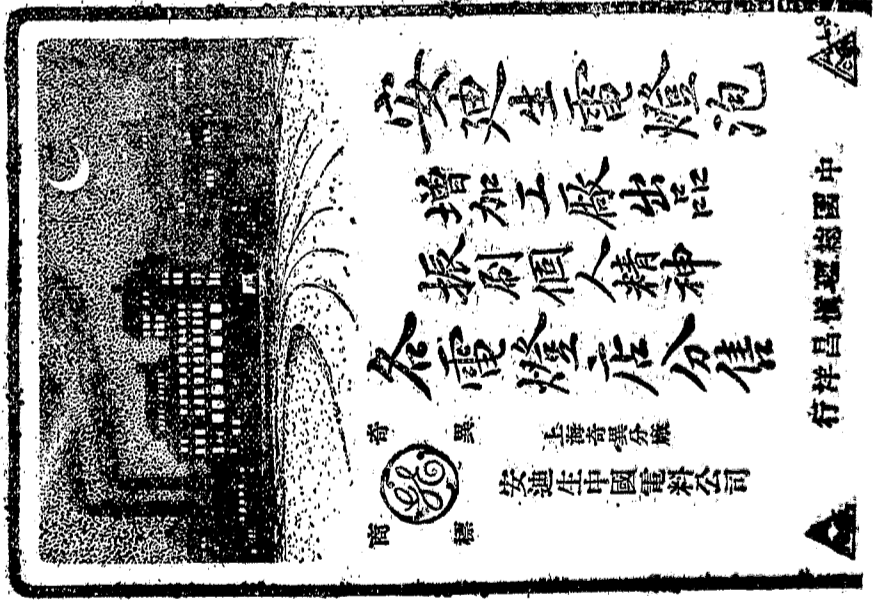 安迪生電燈泡
增加工廠出品
振刷個人精神
各電燈店分售
奇異
商標
GE
上海奇異分廠
安迪生中國電料公司
中國總經理慎昌洋行